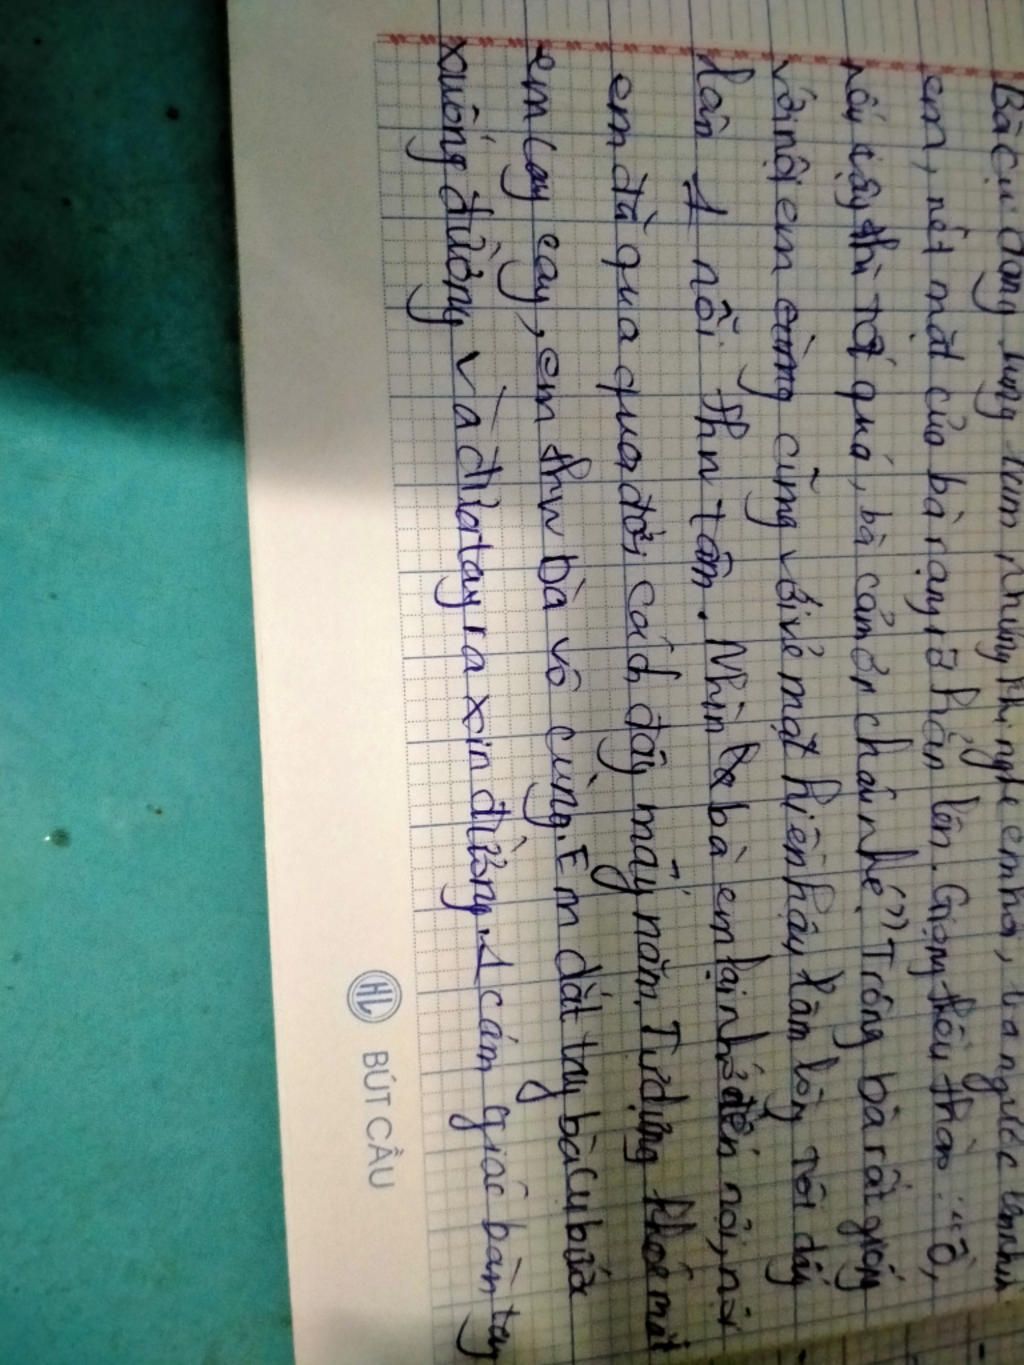 Bà cụ đang lưng khi nghe em hỏi, bà ngước lên nhìn
em, nét mặt của bà rạng rỡ hẳn lên. Giọng thều thào: "Ồ,
nếu vậy thì tốt quá, bà cảm ơn cháu nhé" Trông bà rất giống
với nội em cùng với vẻ mặt hiền hậu, lòng tôi dấy
lên 1 nỗi thw tâm. Nhìn bà em lại nhớ đến nội, nội
em đã qua qua đời cách đây mấy năm. Tự dưng khoé mắt
em cay cay, em thw bà vô cùng. Em dắt tay bà cụ bước
xuống đường và đưa tay ra xin đường. 1 cảm giác bàn tay
HL BÚT CẦU